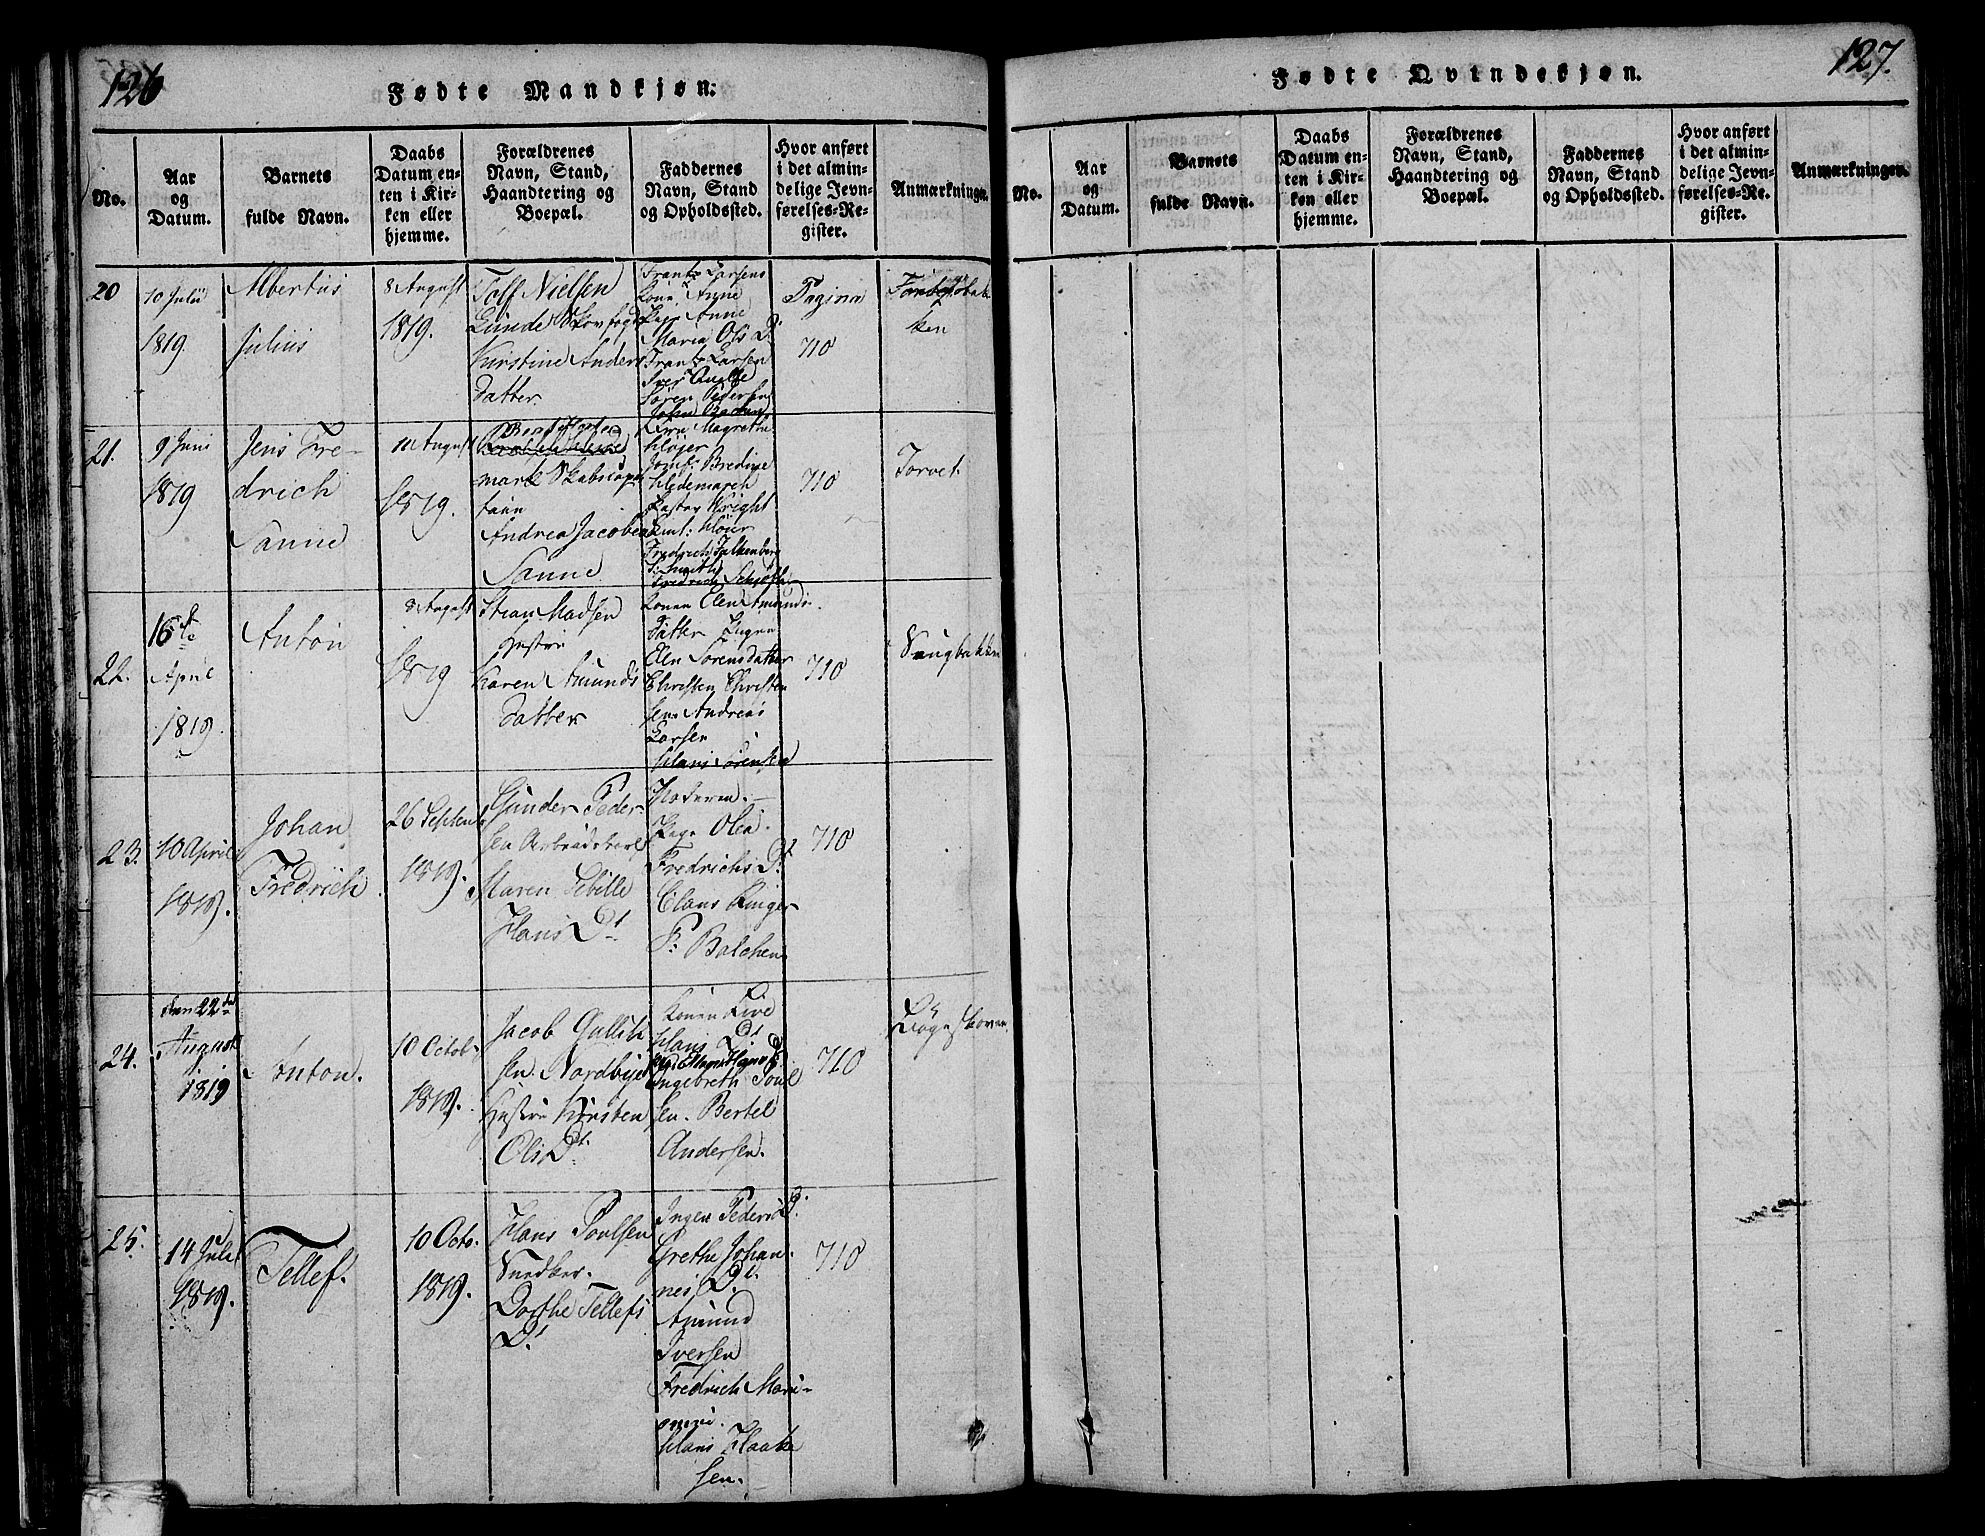 126
Fødte Mandkjøn.
No.
Aar
og
Datum.
Barnets
fulde Navn.
Daabs
Datum en-
ten i Kir-
ken eller
hjemme.
Forældrenes
Navn, Stand,
Haandtering og
Boepæl.
Faddernes
Navn, Stand
og Opholdssted.
Hvor anført
i det almin-
delige Jevn-
førelses-Re-
gister.
Anmærkninger.
20
10 Julii
1819.
Albertus
Julius
8 August
1819.
Tolf Nielsen
Lunde Skovfoged
Kirstine Anders
Datter
Frantz Larsens
Kone, Anne
Anne
Maria Ols D:
Frantz Larsen
Iver
Søren Pedersen
John
Pagina
710
ken
21.
9 Juni
1819
Jens Fre-
drich
Sanne
10 August
1819.
mark Skibscapi
tain
Andrea Jacobea
Sanne
Magrethe
Høyer
Jomf: Bredine
Hedemarch
Pastor Wright
Høier
Fredrich Falkenberg
Smith
Fredrich
710
Torvet
22.
16de
April
1819.
Anton
8 August
1819
Stian Madsen
Hustru
Karen Amunds
Datter
Konen Elen Amunds.
Datter
Elen Sørensdatter
Christen Christen
sen Andreas
Larsen
Hans Sørensen
710
Saugbakken
23.
10 April
1819.
Johan
Fredrich
26 Septem
1819.
Gunder Peder-
sen Arbeidskarl
Maren Sebille
Hans Dt.
Moderen.
Olea
Fredrichs Dt
Claus Ringer
P: Balchen
710
24.
den 22de
August
1819
Anton.
10 Octob.
1819.
Jacob Gullik
sen. Nordbye
Hustru Kirsten
Ols Dt.
Konen Live
Hans Dt
Ingebreth Poul
sen. Bertel
Andersen.
710
Bøgeskoven
25.
14 Juli
1819.
Tellef.
10 Octo.
1819.
Hans Poulsen
Snedker.
Dorthe Tellefs
Dt
Ingen Peders D.
Grethe Johan-
nes Dt.
Amund
Iversen
Fredrich Mari-
Hans Haake
sen.
710
127.
Fødte Qvindekjøn.
No.
Aar
og
Datum.
Barnets
fulde Navn.
Daabs
Datum en-
ten i Kir-
ken eller
hjemme.
Forældrenes
Navn, Stand,
Haandtering og
Boepæl.
Faddernes
Navn, Stand
og Opholdssted.
Hvor anført
i det almin-
delige Jevn-
førelses-Re-
gister.
Anmærkninger.